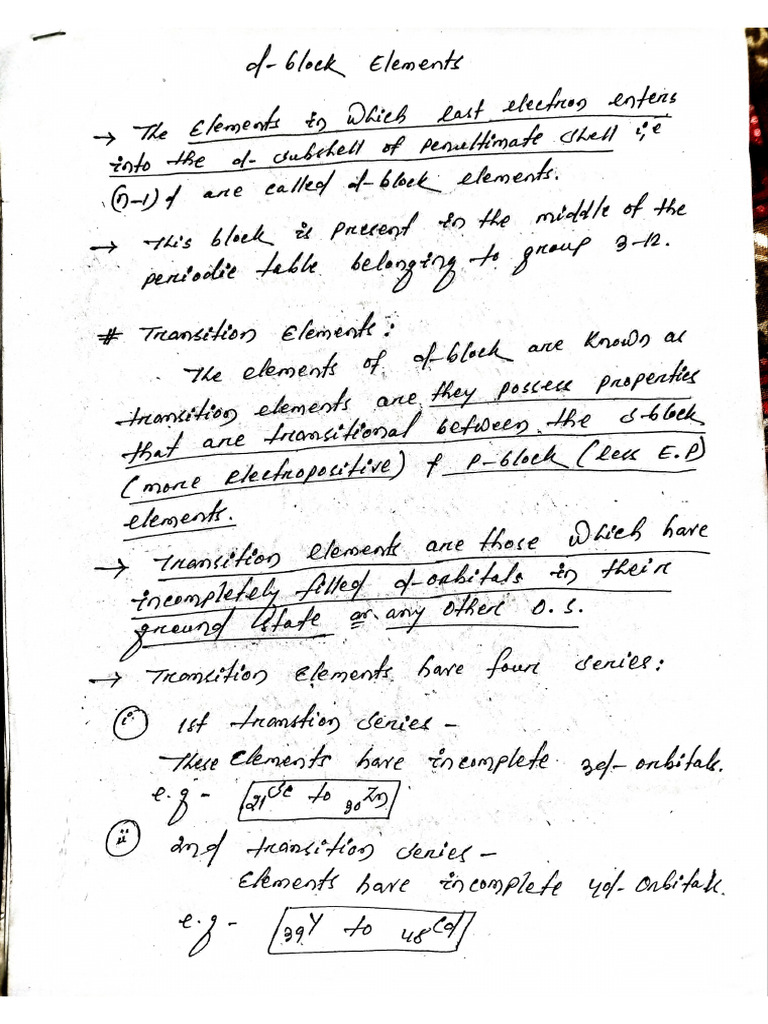 d-block Elements
→ The Elements in which last electron enters
into the d-subshell of penultimate shell i,e
(n-1)d are called d-block elements.
→ This block is present in the middle of the
periodic table belonging to group 3-12.
# Transition Elements:
The elements of d-block are known as
transition elements are they possess properties
that are transitional between the s-block
(more electropositive) & p-block (less E.P)
elements.
→ Transition elements are those which have
incompletely filled d-orbitals in their
ground state or any other O.S.
→ Transition Elements have four series:
(i) 1st transtion series -
These elements have incomplete 3d-orbitals.
e.g - 21Sc to 30Zn
(ii) 2nd transition series -
Elements have incomplete 4d-orbitals.
e.g - 39Y to 48Cd